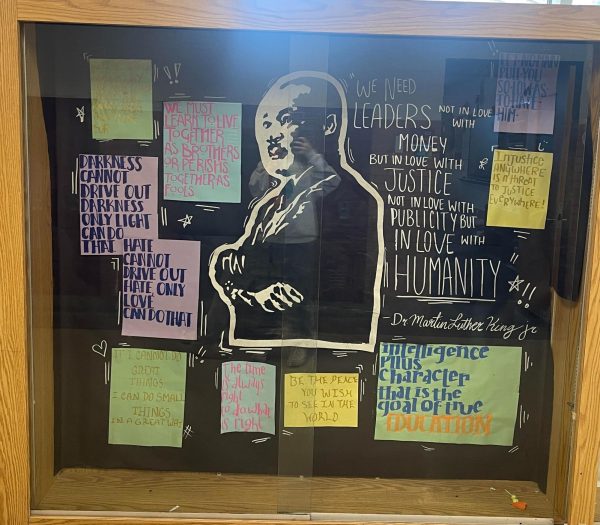 WE MUST
LEARN TO LIVE
TOGETHER
AS BROTHERS
OR PERISH
TOGETHER AS
FOOLS
DARKNESS
CANNOT
DRIVE OUT
DARKNESS
ONLY LIGHT
CAN DO
THAT
HATE
CANNOT
DRIVE OUT
HATE ONLY
LOVE
CAN DO THAT
IF I CANNOT DO
GREAT
THINGS
I CAN DO SMALL
THINGS
IN A GREAT WAY
The time
is always
right
to do what
is right
BE THE PEACE
YOU WISH
TO SEE IN THE
WORLD
"WE NEED
LEADERS NOT IN LOVE
WITH
MONEY
BUT IN LOVE WITH
JUSTICE
NOT IN LOVE WITH
PUBLICITY BUT
IN LOVE WITH
HUMANITY
- Dr Martin Luther King jr
PULL YOU
SO LOW AS
TO HATE
HIM.
INJUSTICE
ANYWHERE
IS A THREAT
TO JUSTICE
EVERYWHERE!
intelligence
plus
character
that is the
goal of true
EDUCATION